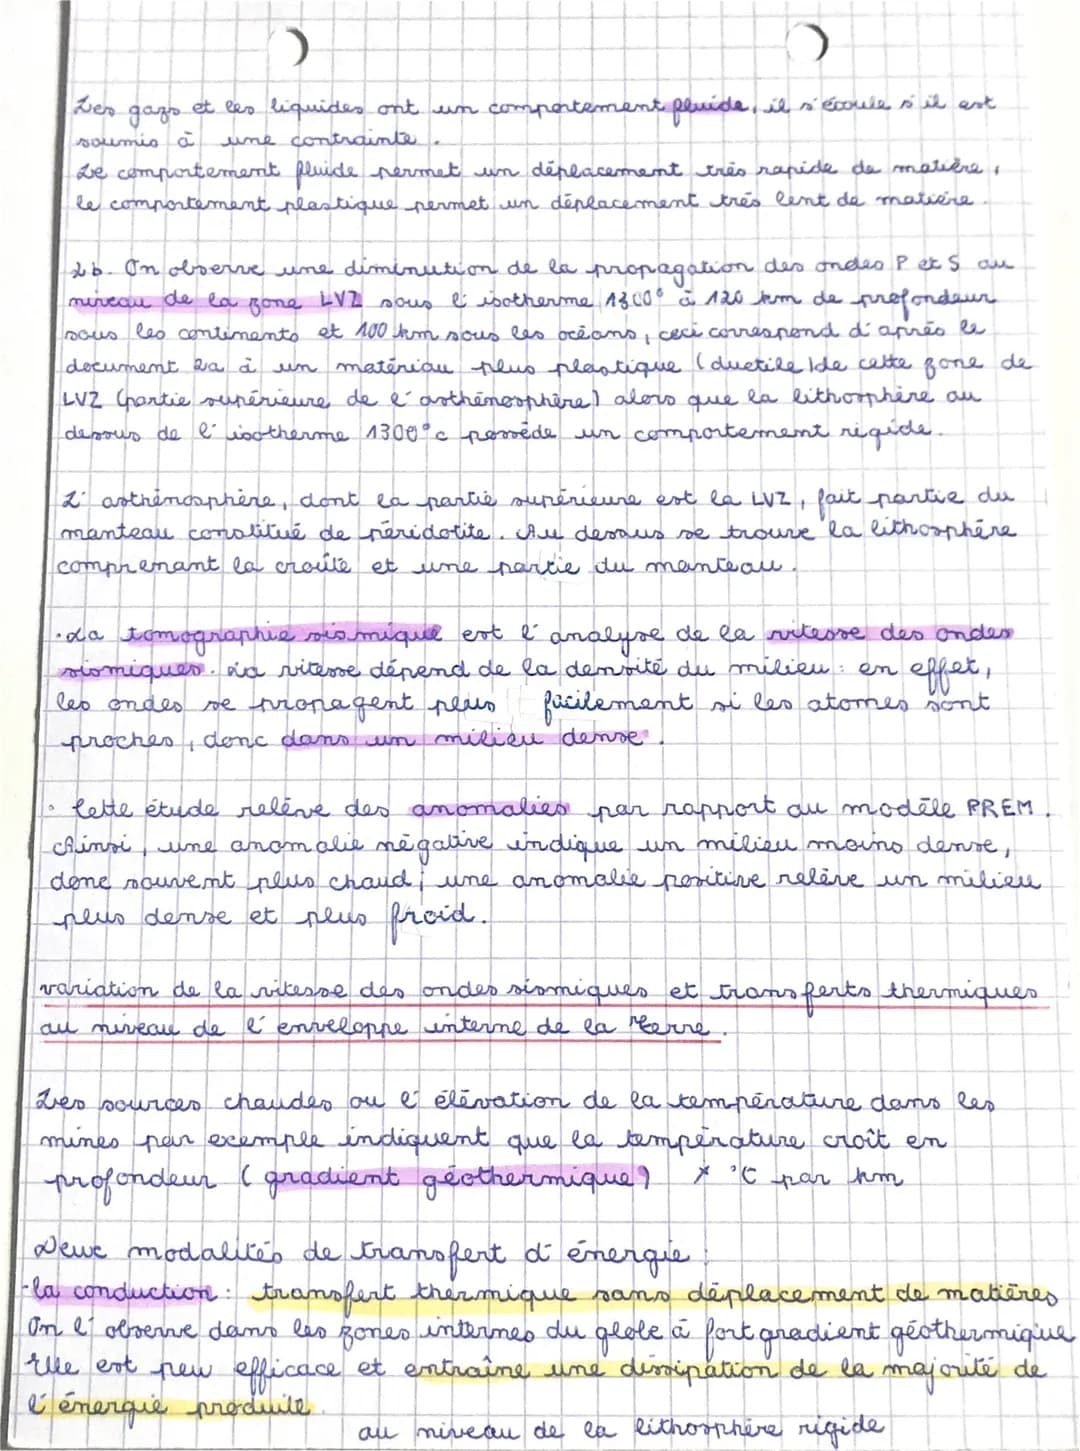 Les gazs et les liquides ont un comportement fluide, il s'écoule s'il est
soumis à une contrainte.
Le comportement fluide permet un déplacement très rapide de matière,
le comportement plastique permet un déplacement très lent de matière.
2b. On observe une diminution de la propagation des ondes P et S au
niveau de la zone LVZ sous l'isotherme 1300° à 120 km de profondeur
sous les continents et 100 km sous les océans, ceci correspond d'après le
document 2a à un matériau plus plastique (ductile) de cette zone de
LVZ (partie supérieure de l'asthénosphère) alors que la lithosphère au
dessus de l'isotherme 1300°c possède un comportement rigide.
L'asthénosphère, dont la partie supérieure est la LVZ, fait partie du
manteau constitué de péridotite. Au dessus se trouve la lithosphère
comprenant la croûte et une partie du manteau.
·La tomographie sismique est l'analyse de la vitesse des ondes
sismiques. La vitesse dépend de la densité du milieu : en effet,
les ondes se propagent plus facilement si les atomes sont
proches, donc dans un milieu dense.
· Cette étude relève des anomalies par rapport au modèle PREM.
Ainsi, une anomalie négative indique un milieu moins dense,
donc souvent plus chaud; une anomalie positive relève un milieu
plus dense et plus froid.
variation de la vitesse des ondes sismiques et transferts thermiques
au niveau de l'enveloppe interne de la Terre.
Les sources chaudes ou l'élévation de la température dans les
mines par exemple indiquent que la température croît en
profondeur (gradient géothermique) * °C par km
Deux modalités de transfert d'énergie :
-la conduction : transfert thermique sans déplacement de matières
On l'observe dans les zones internes du globe à fort gradient géothermique
Elle est peu efficace et entraîne une dissipation de la majorité de
l'énergie produite.
au niveau de la lithosphère rigide